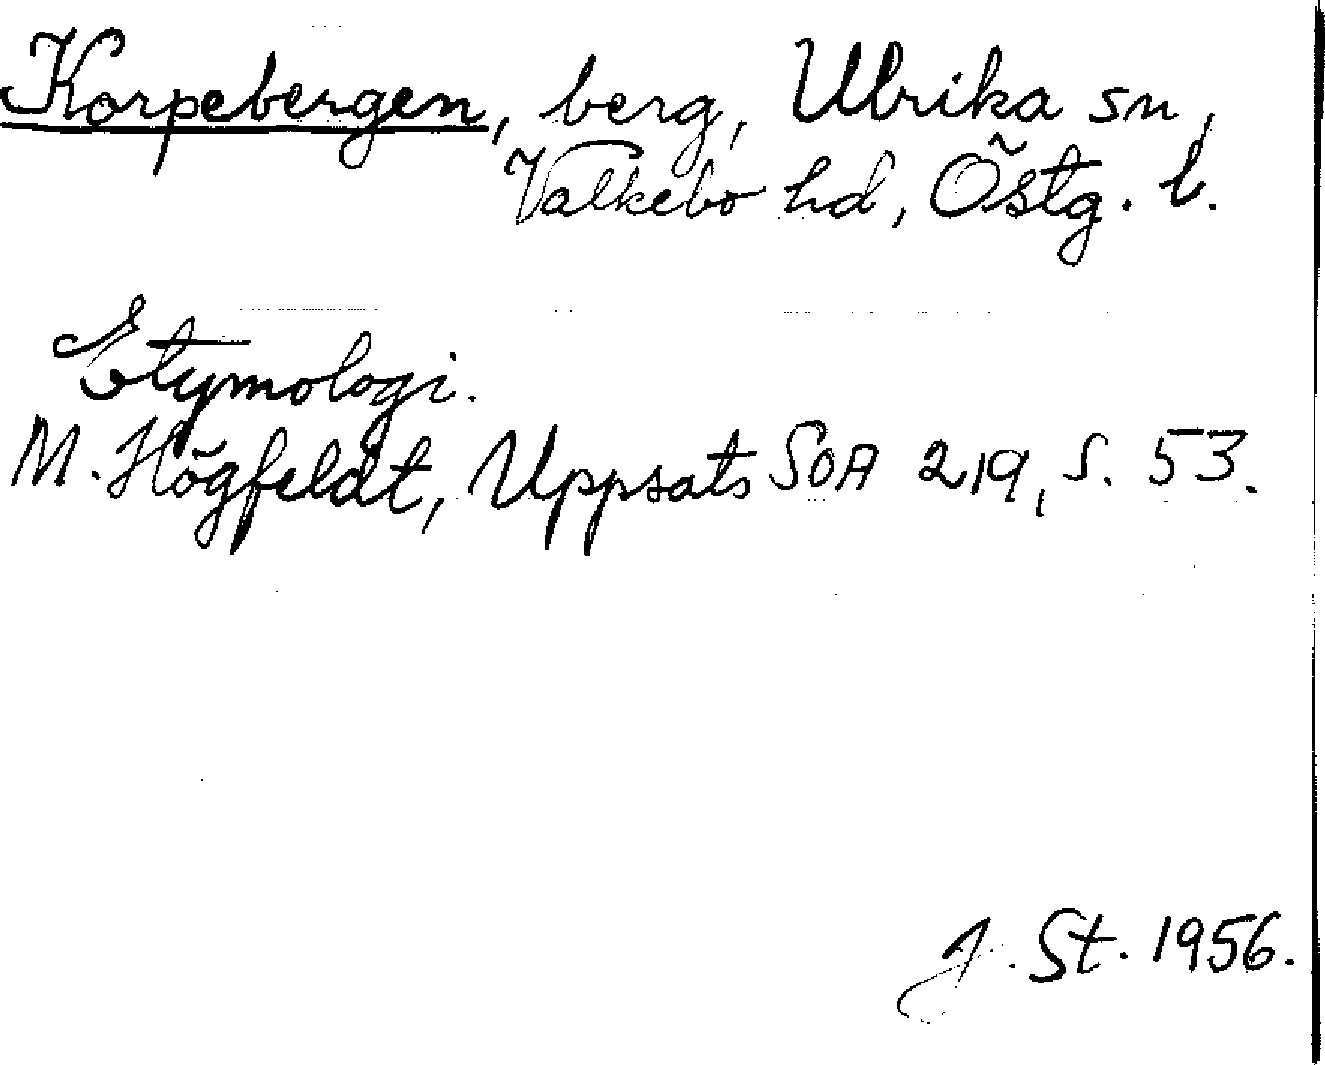 Korpebergen, berg, Ulrika sn,
Valkebo hd, Östg. l.
Etymologi.
M. Högfeldt, Uppsats SOA 219, s. 53.
J. St. 1956.